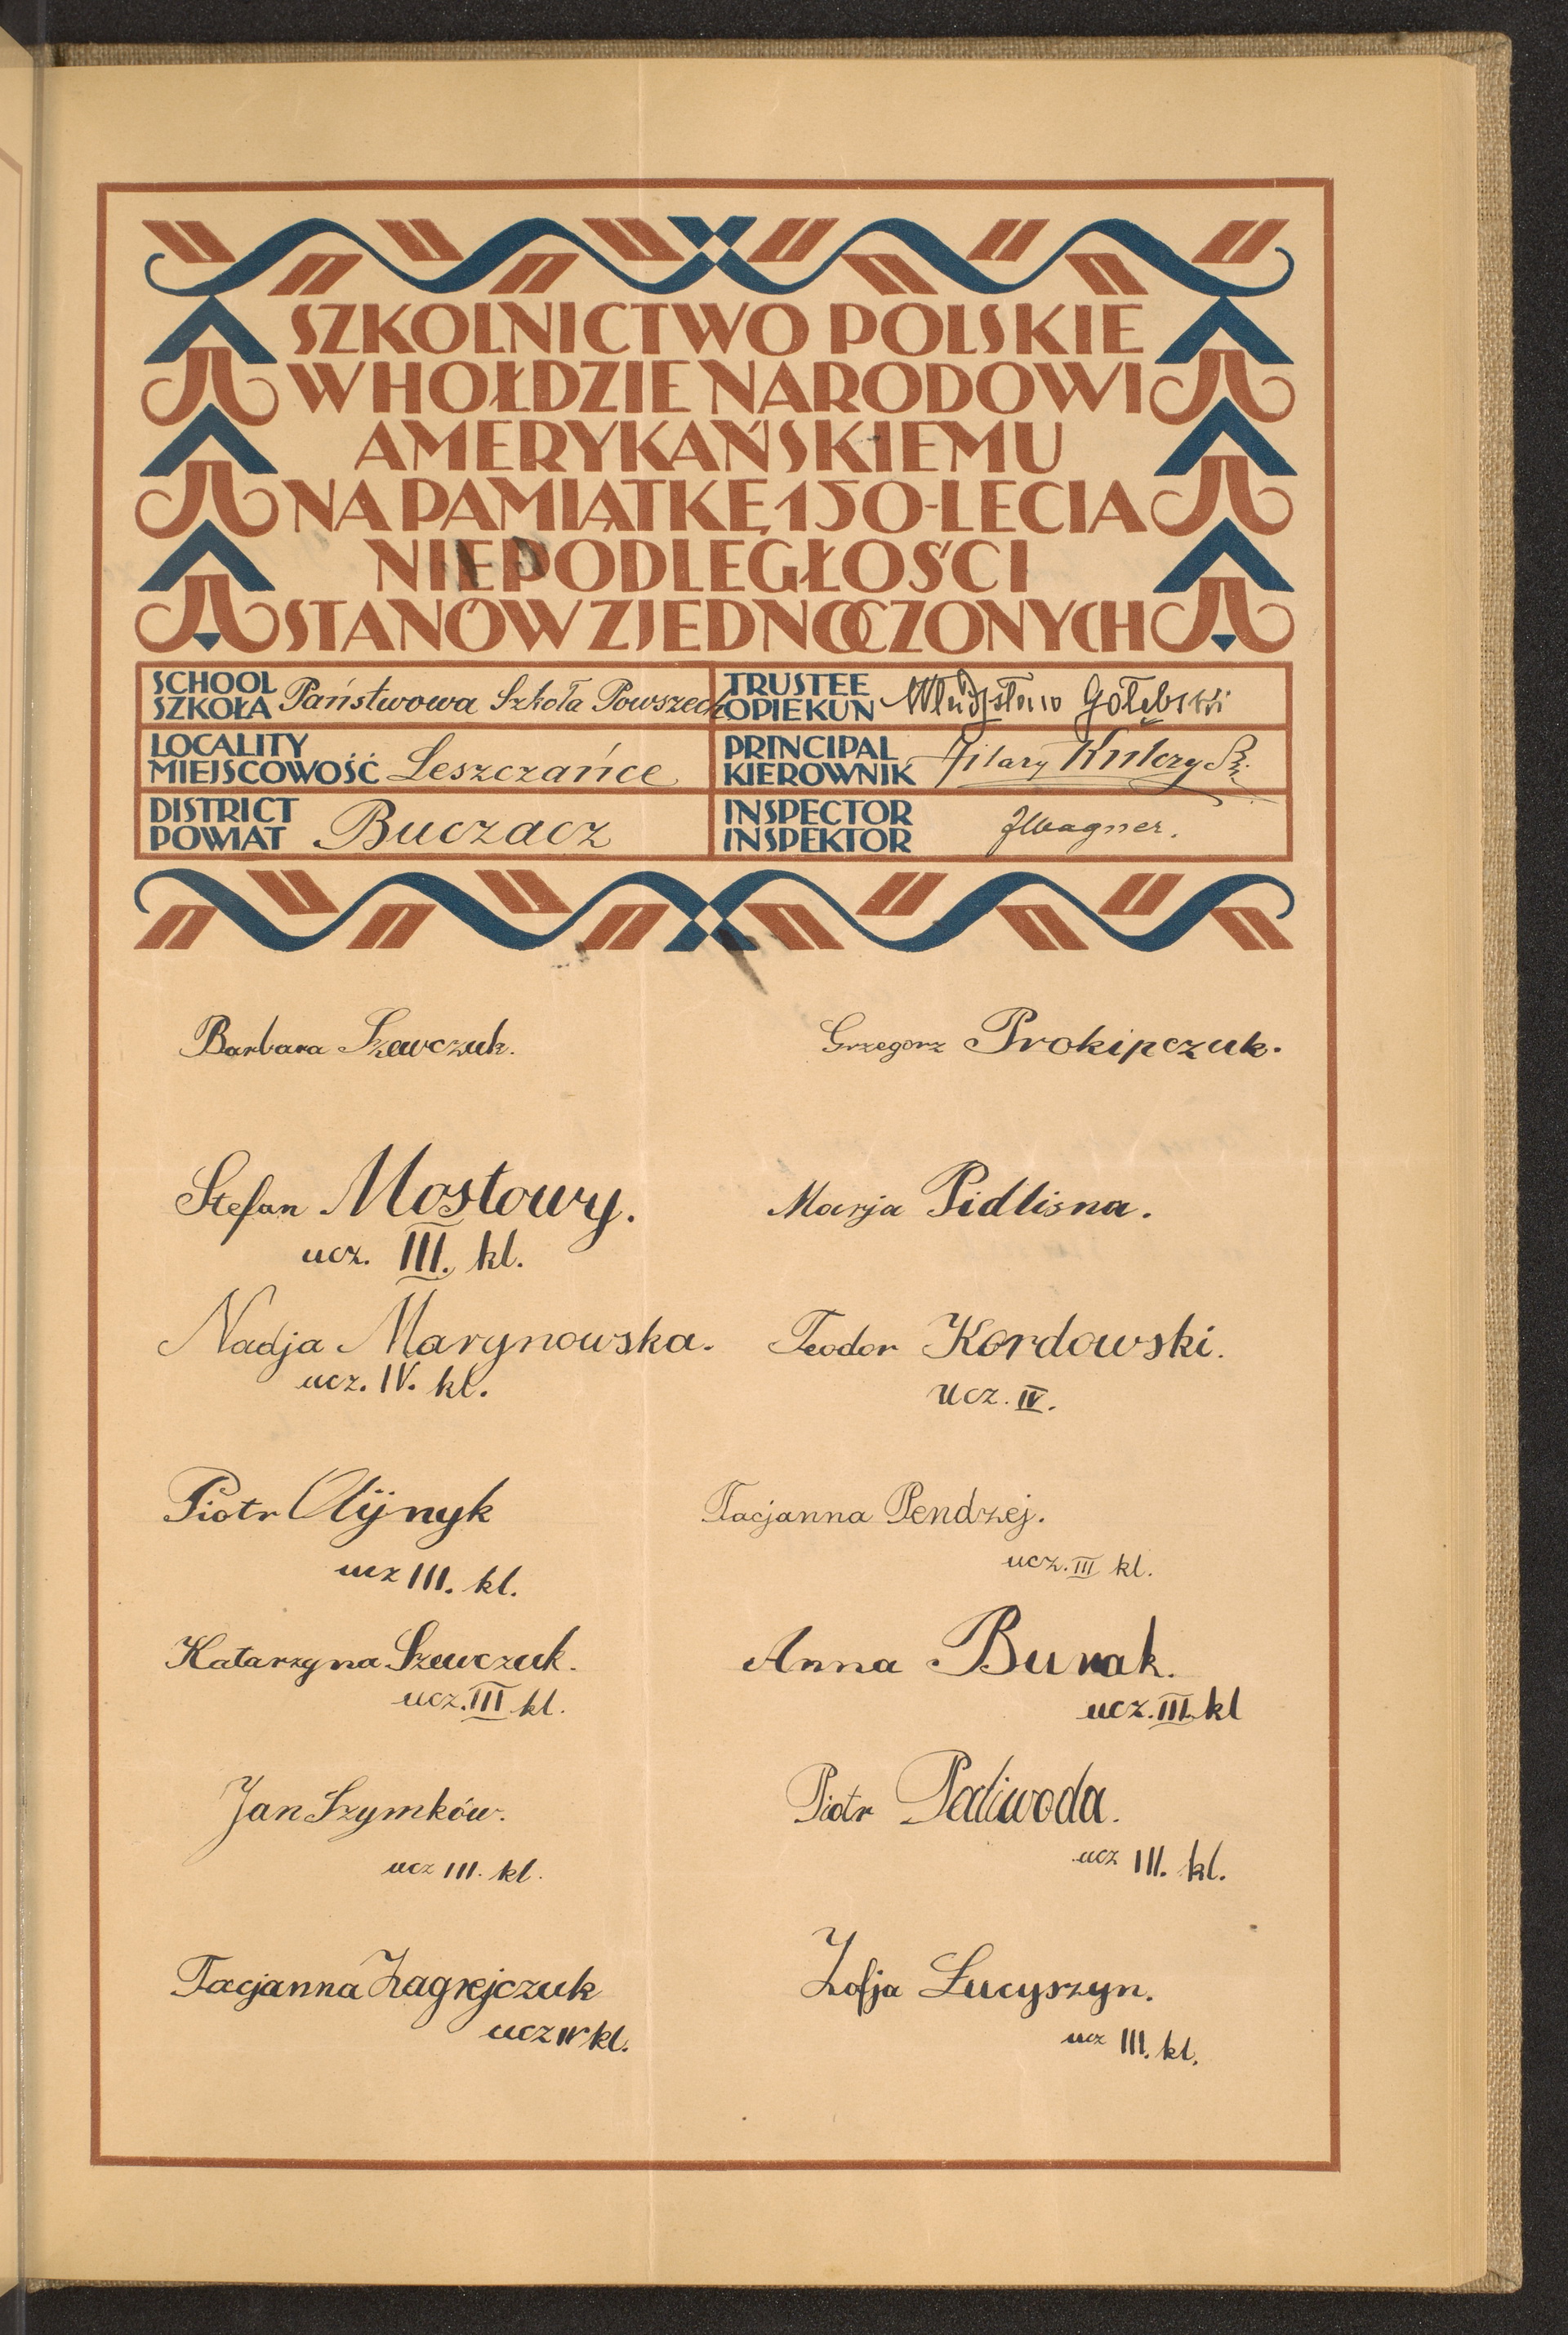 SZKOLNICTWO POLSKIE
W HOŁDZIE NARODOWI
AMERYKAŃSKIEMU
NA PAMIĄTKĘ 150-LECIA
NIEPODLEGŁOŚCI
STANÓW ZJEDNOCZONYCH
SCHOOL
SZKOŁA Państwowa Szkoła Powszech
TRUSTEE
OPIEKUN Władysław Gołębski
LOCALITY
MIEJSCOWOŚĆ Leszczańce
PRINCIPAL
KIEROWNIK Hilary
DISTRICT
POWIAT Buczacz
INSPECTOR
INSPEKTOR JWagner.
Barbara Szewczuk.
Grzegorz Prokipczuk.
Stefan Mostowy.
ucz. III. kl.
Marja Pidlisna.
Nadja Marynowska.
ucz. IV. kl.
Teodor Kordowski.
Ucz. IV.
Piotr Olijnyk
ucz III. kl.
Tacjanna Pendzej.
ucz. III kl.
Katarzyna Szewczuk.
ucz. III kl.
Anna Burak.
ucz. III. kl
Jan Szymków.
ucz III. kl.
Piotr Paliwoda.
ucz III. kl.
Tacjanna Zagrejczuk
ucz IV kl.
Zofja Łucyszyn.
ucz III. kl.